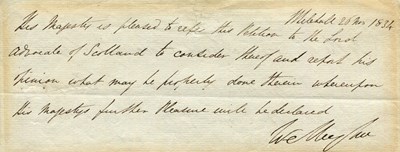 Whitehall 26 Nov 1834
His Majesty is pleased to refer this Petition to the Lord
advocate of Scotland to consider thereof and report his
opinion what may be properly done therein whereupon
His Majestys further Pleasure will be declared
Wellington